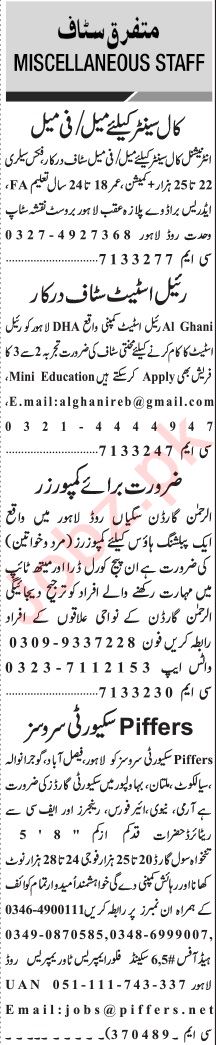 متفرق سٹاف
MISCELLANEOUS STAFF
کال سینٹر کیلئے میل/فی میل
انٹرنیشنل کال سینٹر کیلئے میل/فی میل سٹاف درکار، فکس سیلری
22 تا 25 ہزار + کمیشن، عمر 18 تا 24 سال تعلیم FA،
ایڈریس براڈوے پلازہ عقب لاہور بروسٹ نقشہ سٹاپ
وحدت روڈ لاہور 0327-4927368
سی ایم 7133277
رئیل اسٹیٹ سٹاف درکار
Al Ghani رئیل اسٹیٹ کمپنی واقع DHA لاہور کو رئیل
اسٹیٹ کا کام کرنے کیلئے محنتی سٹاف کی ضرورت تجربہ 2 سے 3 کا
فریش بھی Apply کر سکتے ہیں Mini Education،
E.mail:alghanireb@gmail.com،
0321-4444947
سی ایم 7133247
ضرورت برائے کمپوزرز
الرحمٰن گارڈن سگیاں روڈ لاہور میں واقع
ایک پبلشنگ ہاؤس کیلئے کمپوزرز (مرد و خواتین)
کی ضرورت ہے ان پیج کورل ڈرا اور میتھ ٹائپ
میں مہارت رکھنے والے افراد کو ترجیح دیجائیگی
الرحمٰن گارڈن کے نواحی علاقوں کے افراد
رابطہ کریں فون 0309-9337228
واٹس ایپ 0323-7112153
سی ایم 7133230
Piffers سکیورٹی سروسز
Piffers سکیورٹی سروسز کو لاہور، فیصل آباد، گوجرانوالہ
، سیالکوٹ، ملتان، بہاولپور میں سکیورٹی گارڈز کی ضرورت
ہے آرمی، نیوی، ائیرفورس، رینجرز اور ایف سی سے
ریٹائرڈ حضرات قد کم از کم "8'5
تنخواہ سول گارڈ 20 تا 25 ہزار فوجی 24 تا 28 ہزار نوٹ
کھانا اور رہائش کمپنی دے گی خواہشمند امیدوار تمام کوائف
کے ہمراہ ان نمبرز پر رابطہ کریں 0346-4900111
0349-0870585,0348-6999007,
ہیڈ آفس #6,5 سیکنڈ فلور ایمپریس ٹاور ایمپریس روڈ
لاہور UAN 051-111-743-337
Email:jobs@piffers.net
سی ایم (370489)